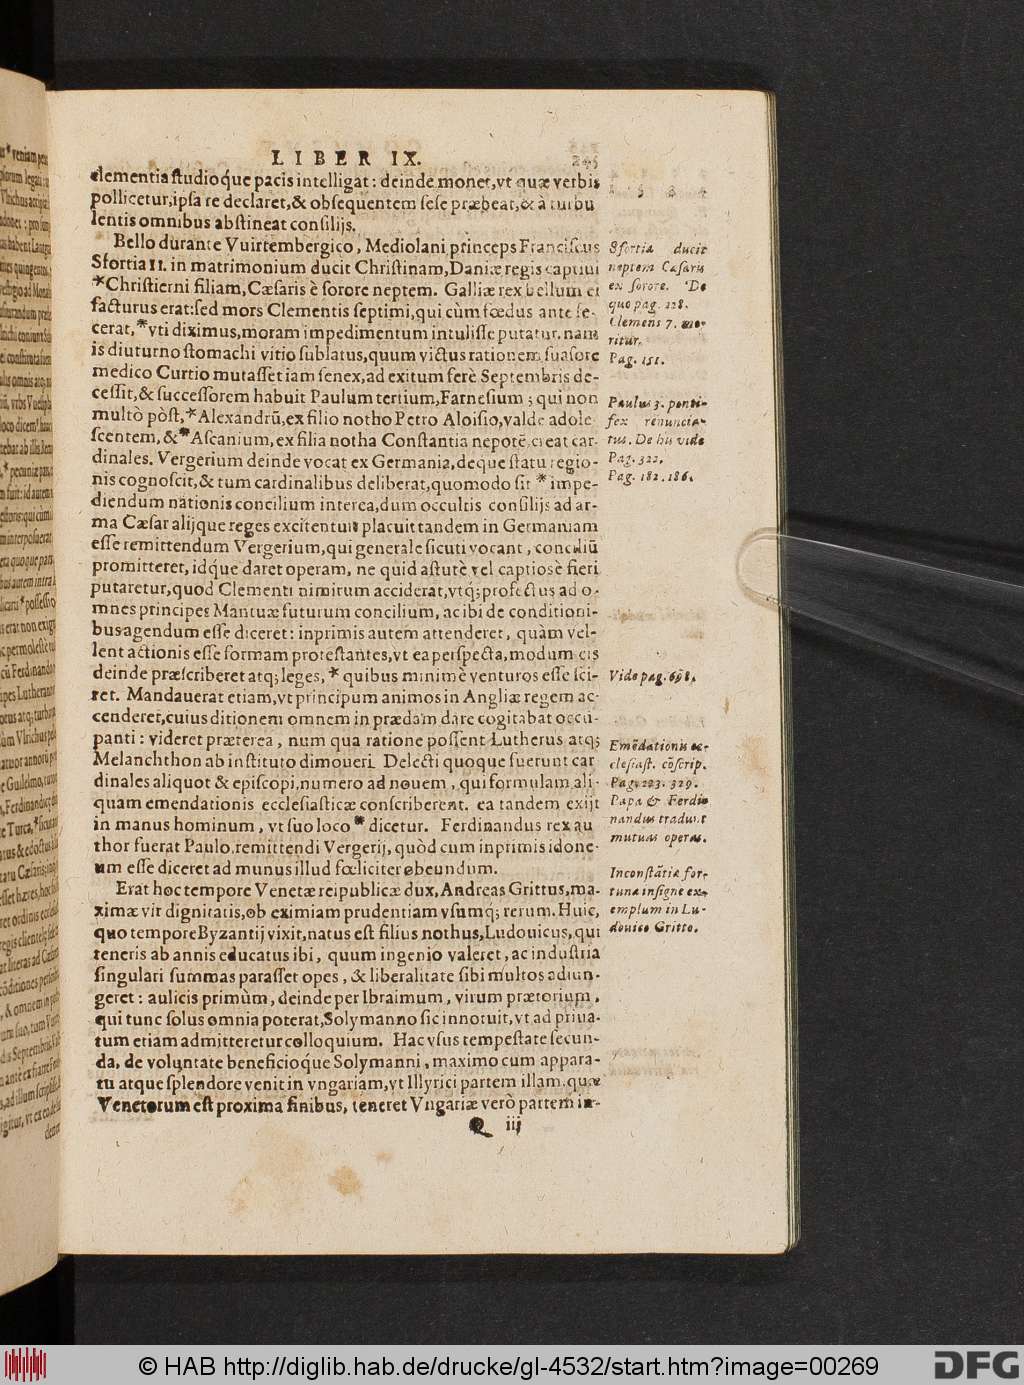 LIBER IX.
clementia studioq́ue pacis intelligat: deinde monet, vt quæ verbis
pollicetur, ipsa re declaret, & obsequentem sese præbeat, & à turbu
lentis omnibus abstineat consilijs.
Bello durante Vuirtembergico, Mediolani princeps Franciscus
Sfortia II. in matrimonium ducit Christinam, Daniæ regis captiui
*Christierni filiam, Cæsaris è sorore neptem. Galliæ rex bellum ei
facturus erat: sed mors Clementis septimi, qui cùm fœdus ante fe-
cerat, *vti diximus, moram impedimentum intulisse putatur. nam
is diuturno stomachi vitio sublatus, quum victus rationem suasore
medico Curtio mutasset iam senex, ad exitum ferè Septembris de-
cessit, & successorem habuit Paulum tertium, Farnesium; qui non
multò pòst, *Alexandrũ, ex filio notho Petro Aloisio, valde adole-
scentem, & *Ascanium, ex filia notha Constantia nepotẽ, creat car-
dinales. Vergerium deinde vocat ex Germania, deque statu regio-
nis cognoscit, & tum cardinalibus deliberat, quomodo sit *impe-
diendum nationis concilium interea, dum occultis consilijs ad ar-
ma Cæsar alijque reges excitentur: placuit tandem in Germaniam
esse remittendum Vergerium, qui generale sicuti vocant, conciliũ
promitteret, idq́ue daret operam, ne quid astutè vel captiosè fieri
putaretur, quod Clementi nimirum acciderat, vtq́; profectus ad o-
mnes principes Mantuæ futurum concilium, ac ibi de conditioni-
bus agendum esse diceret: inprimis autem attenderet, quàm vel-
lent actionis esse formam protestantes, vt ea perspecta, modum eis
deinde præscriberet atq; leges, *quibus minimè venturos esse sci-
ret. Mandauerat etiam, vt principum animos in Angliæ regem ac-
cenderet, cuius ditionem omnem in prædam dare cogitabat occu-
panti: videret præterea, num qua ratione possent Lutherus atq;
Melanchthon ab instituto dimoueri. Delecti quoque fuerunt car
dinales aliquot & episcopi, numero ad nouem, qui formulam ali-
quam emendationis ecclesiasticæ conscriberent. ea tandem exijt
in manus hominum, vt suo loco *dicetur. Ferdinandus rex au
thor fuerat Paulo, remittendi Vergerij, quòd cum inprimis idone-
um esse diceret ad munus illud fœliciter obeundum.
Erat hoc tempore Venetæ reipublicæ dux, Andreas Grittus, ma-
ximæ vir dignitatis, ob eximiam prudentiam vsumq́; rerum. Huic,
quo tempore Byzantij vixit, natus est filius nothus, Ludouicus, qui
teneris ab annis educatus ibi, quum ingenio valeret, ac industria
singulari summas parasset opes, & liberalitate sibi multos adiun-
geret: aulicis primùm, deinde per Ibraimum, virum prætorium,
qui tunc solus omnia poterat, Solymanno sic innotuit, vt ad priua-
tum etiam admitteretur colloquium. Hac vsus tempestate secun-
da, de voluntate beneficioque Solymanni, maximo cum appara-
tu atque splendore venit in vngariam, vt Illyrici partem illam, quæ
Venetorum est proxima finibus, teneret Vngariæ verò partem in-
Q iij
Sfortia ducit
neptem Cæsaris
ex sorore. De
quo pag. 128.
Clemens 7. mo-
ritur.
Pag. 151.
Paulus 3. ponti-
fex renuncia-
tus. De his vide
Pag. 322.
Pag. 182. 186.
Vide pag. 698.
Emẽdationis ec-
clesiast. cõscrip.
Pag. 223. 329.
Papa & Ferdi-
nandus tradunt
mutuas operas.
Inconstãtiæ for-
tunæ insigne ex-
emplum in Lu-
douico Gritto.
© HAB http://diglib.hab.de/drucke/gl-4532/start.htm?image=00269
DFG